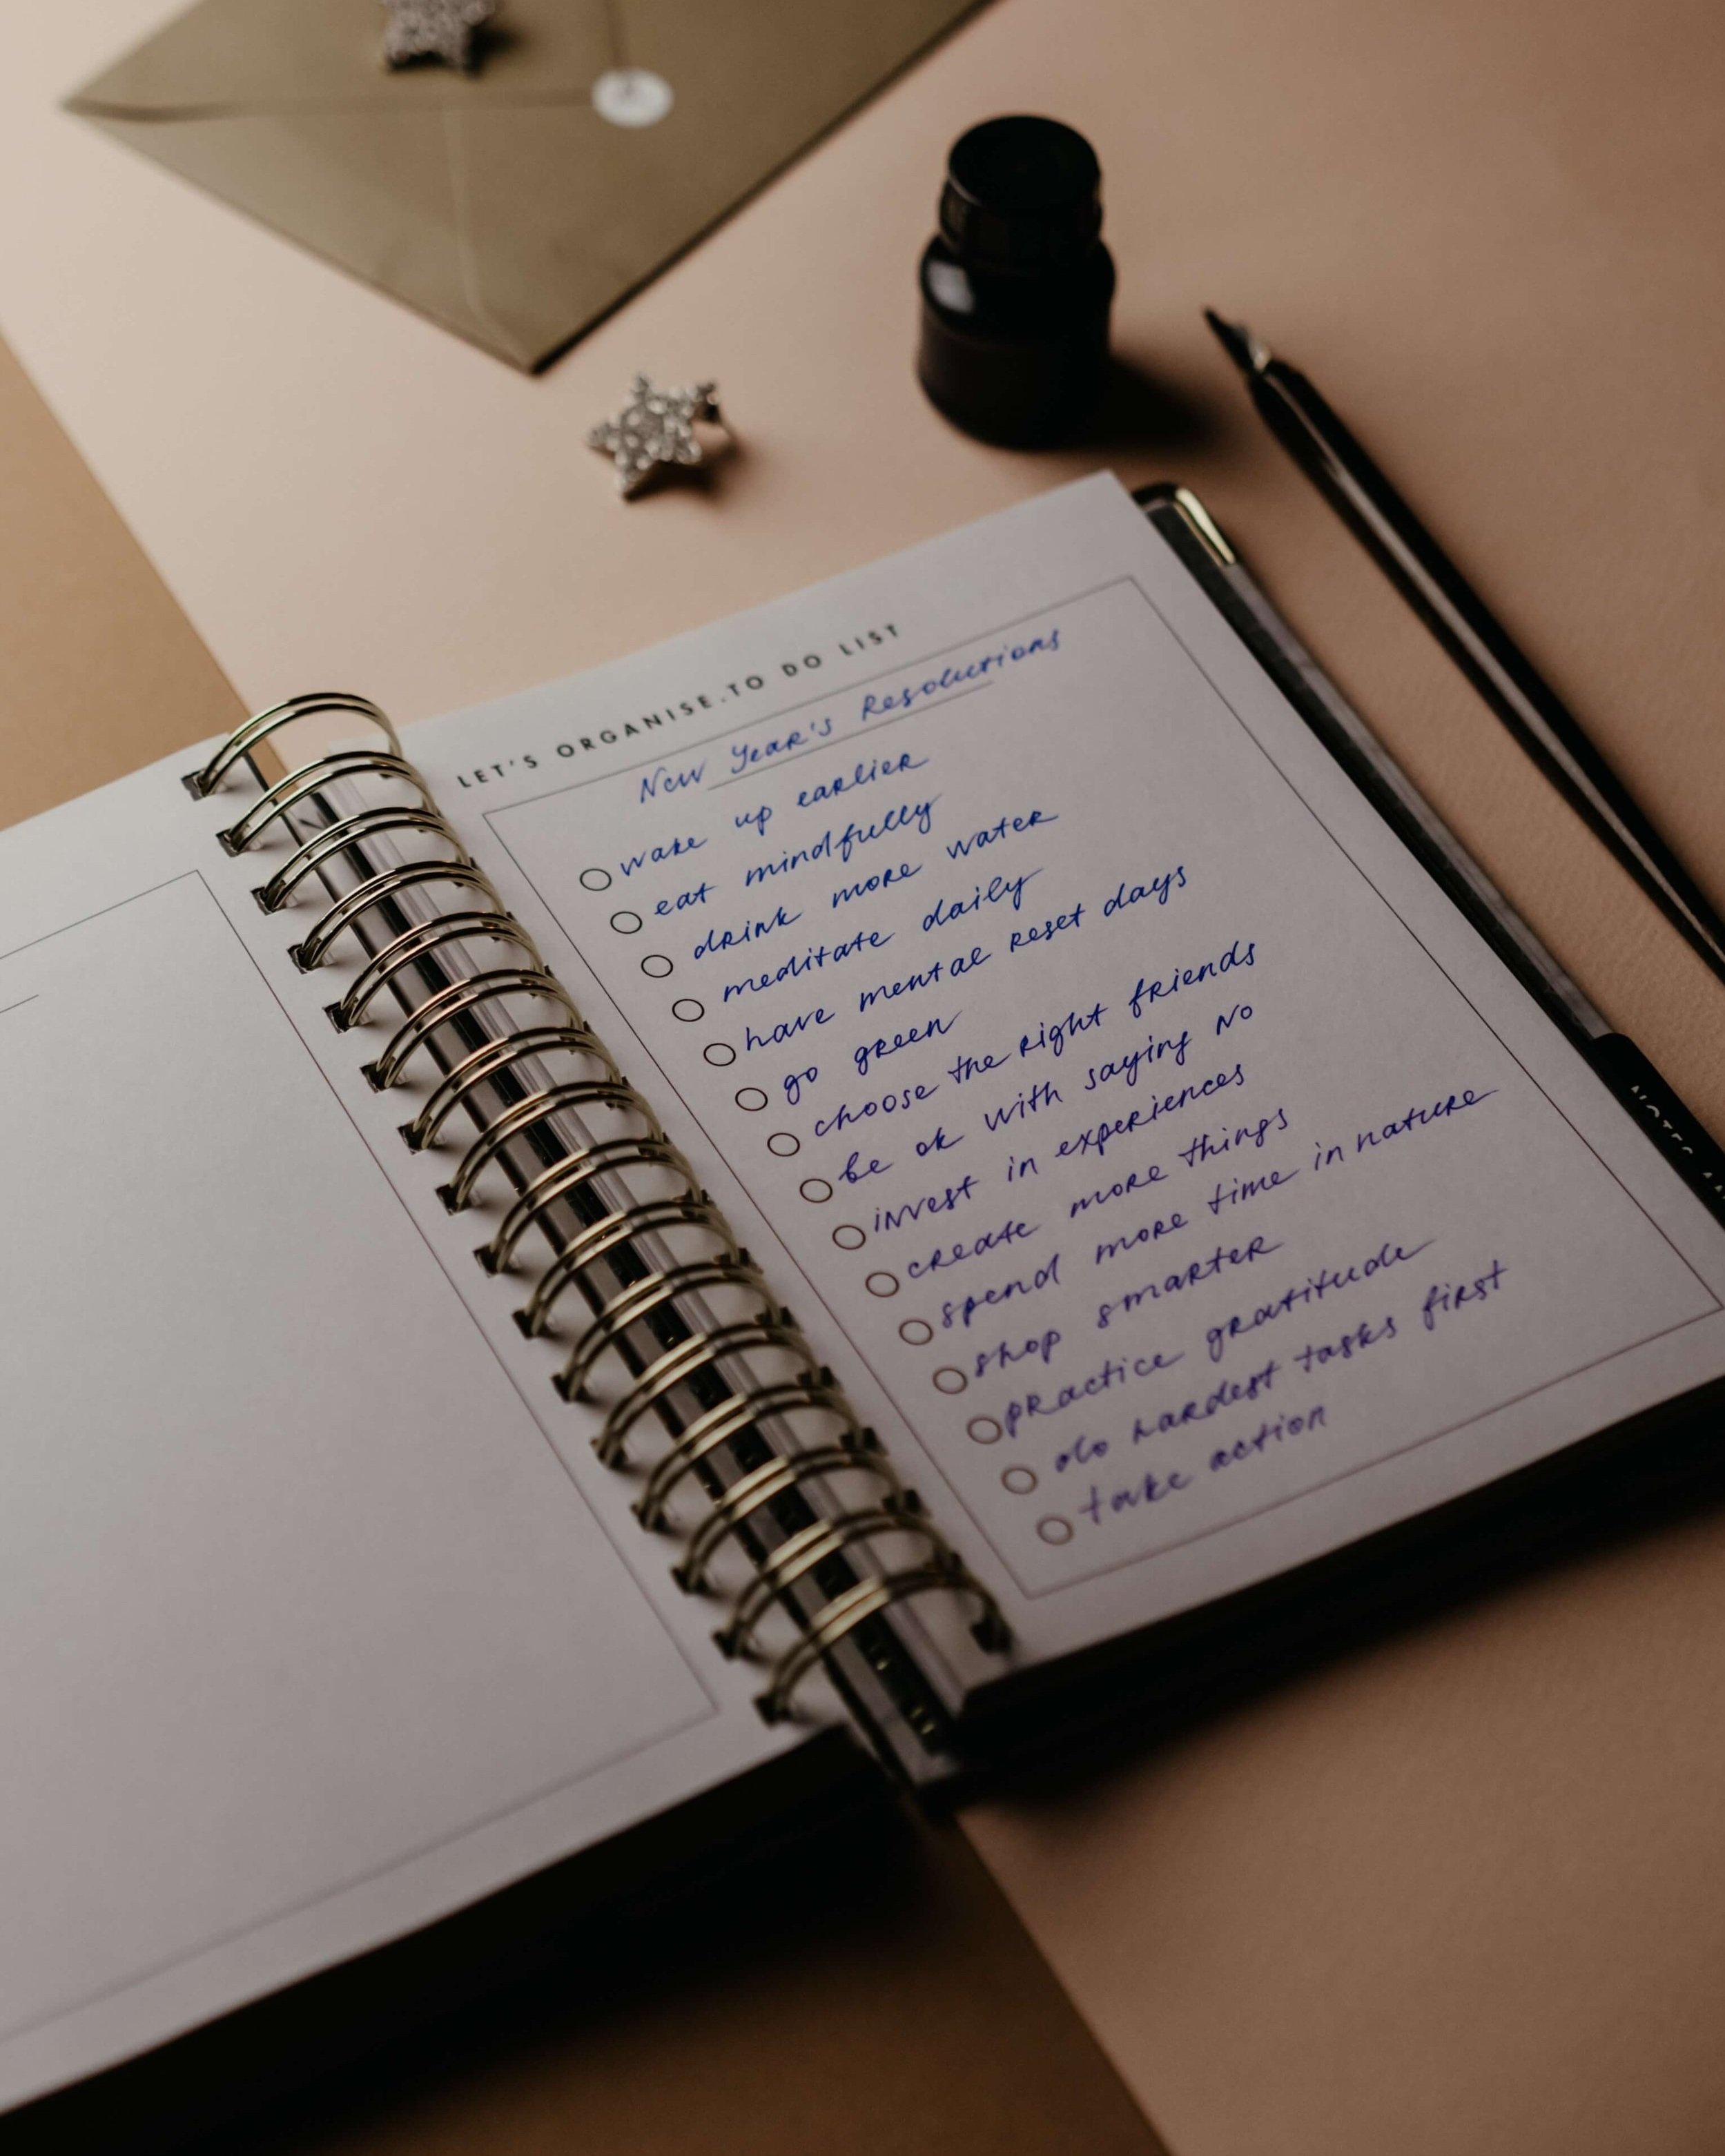 LET'S ORGANISE.TO DO LIST
New Year's Resolutions
wake up earlier
eat mindfully
drink more water
meditate daily
have mental reset days
go green
choose the right friends
be ok with saying No
invest in experiences
create more things
spend more time in nature
shop smarter
practice gratitude
do hardest tasks first
take action
NOTES